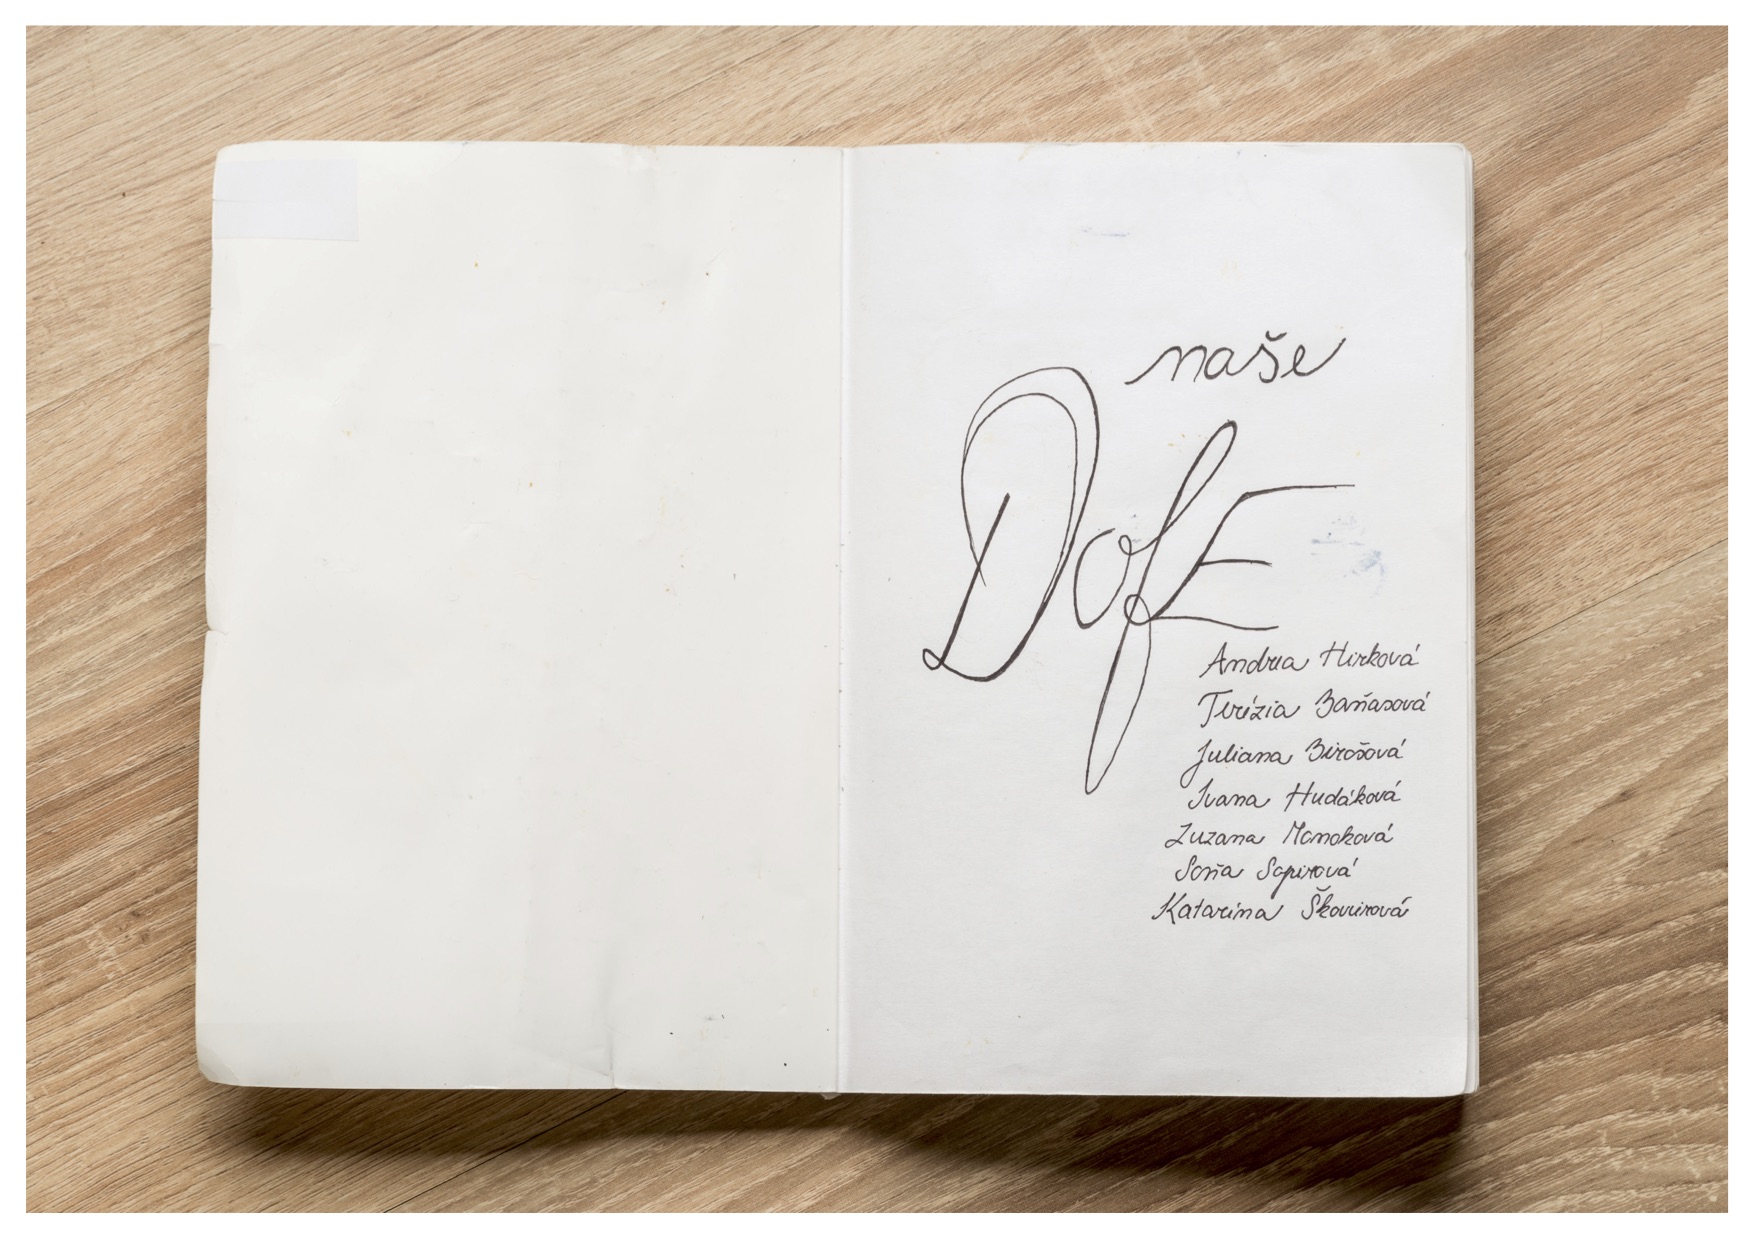 naše
DofE
Andrea Hirková
Terézia Baňasová
Juliana Birošová
Ivana Hudáková
Zuzana Monoková
Soňa Sopirová
Katarína Škovirová